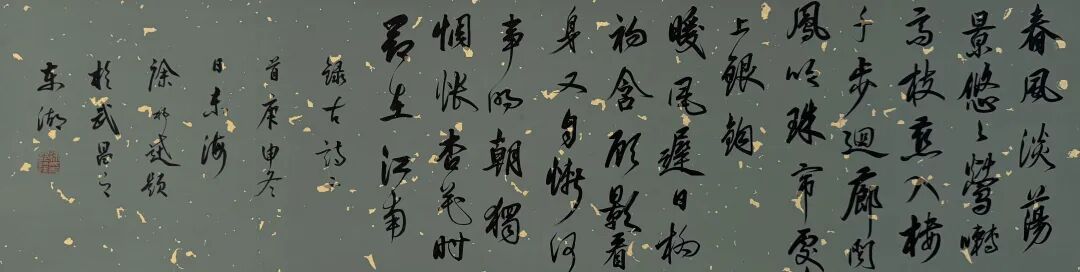 春風淡蕩
景悠々鶯囀
高枝燕入樓
千步迴廊聞
鳳吹珠帘處
上銀鉤
暖風遲日柳
初含顧影看
身又自慚何
事明朝獨
惆悵杏花時
節在江南
錄古詩二
首庚申冬
日東海
徐邦達題
於武昌之
東湖